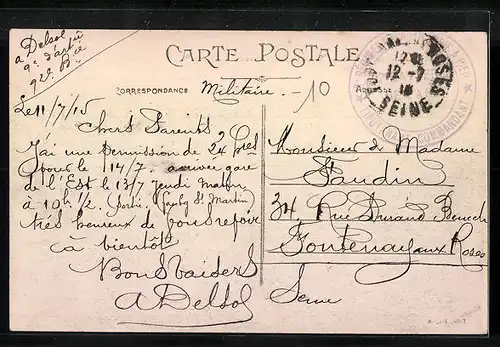 A Delsol
9e d'artie
92e Bie
CARTE POSTALE
CORRESPONDANCE
Militaire.
-10
Adresse
12-7
SEINE
COMMANDANT
Le 11/7/15
Chers Parents
J'ai une permission de 24 hres
pour le 14/7. arrivée gare
de l'Est le 13/7 Jeudi Matin
à 10h 1/2. (Sortie. Faubg St. Martin)
très heureux de vous revoir
à bientôt
Bons baisers
A Delsol
Monsieur & Madame
Faudin
34, Rue Durand Benech
Fontenay aux Roses
Seine